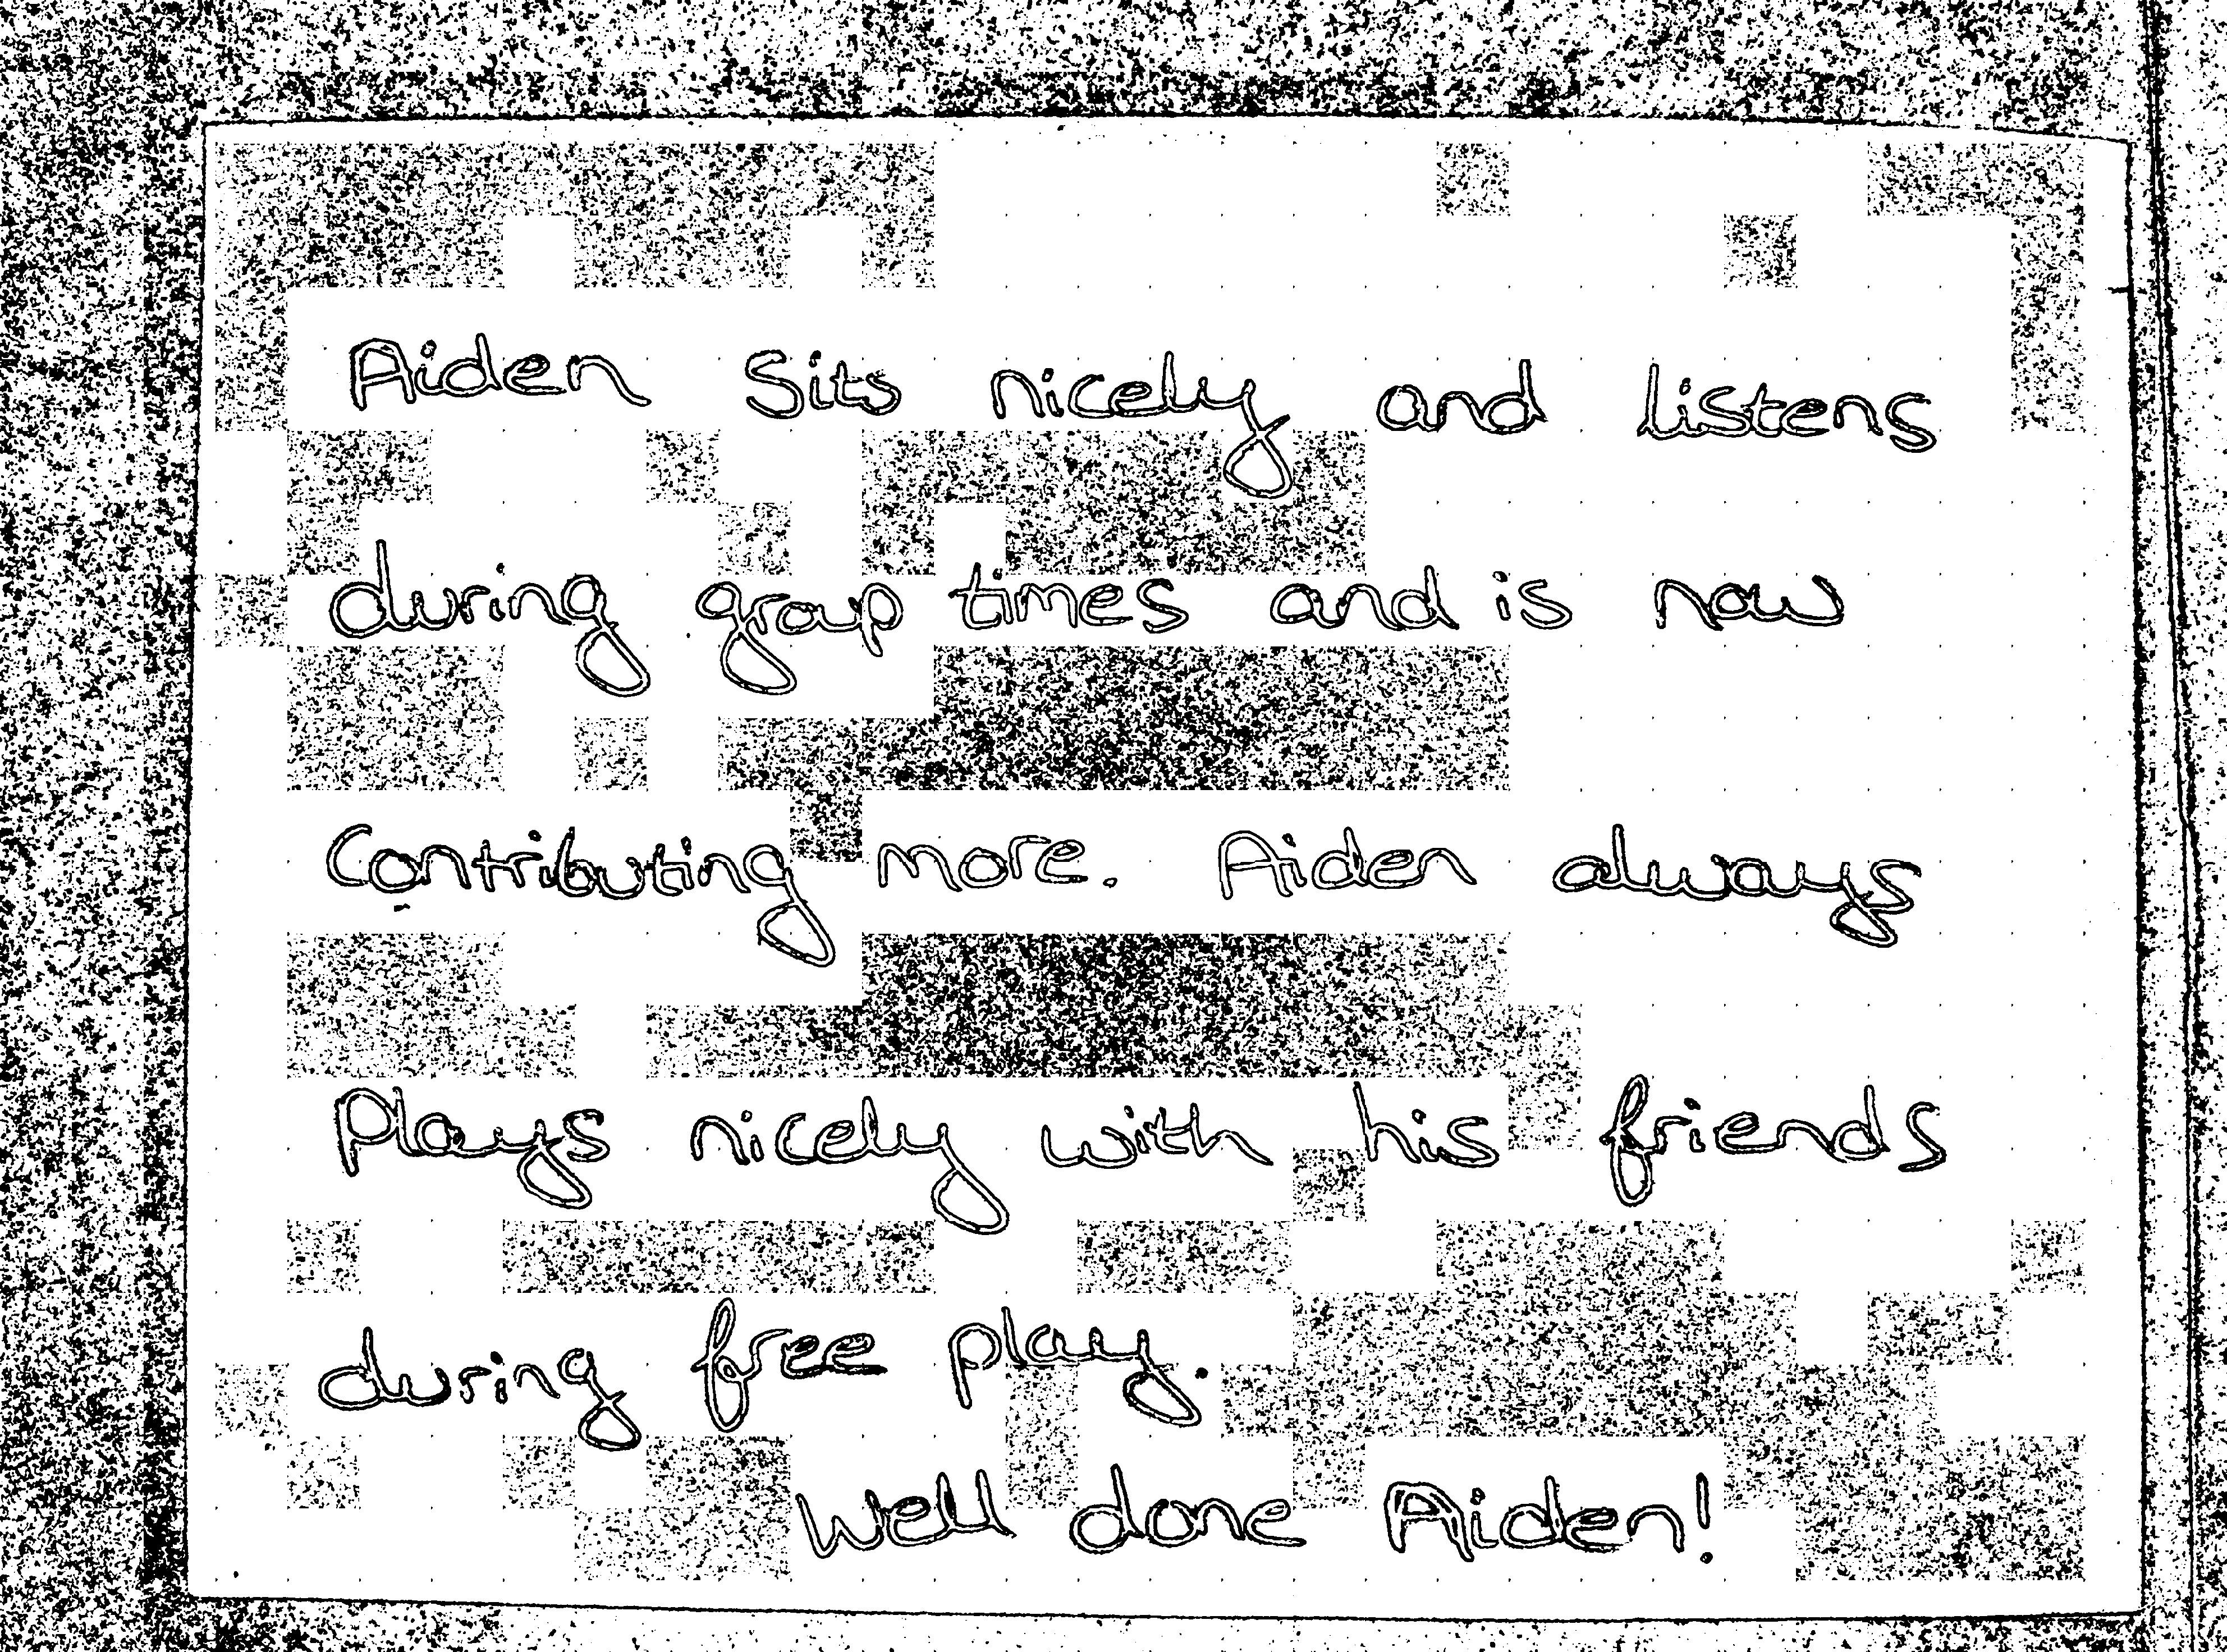 Aiden Sits nicely and listens
during group times and is now
Contributing more. Aiden always
Plays nicely with his friends
during free play.
Well done Aiden!